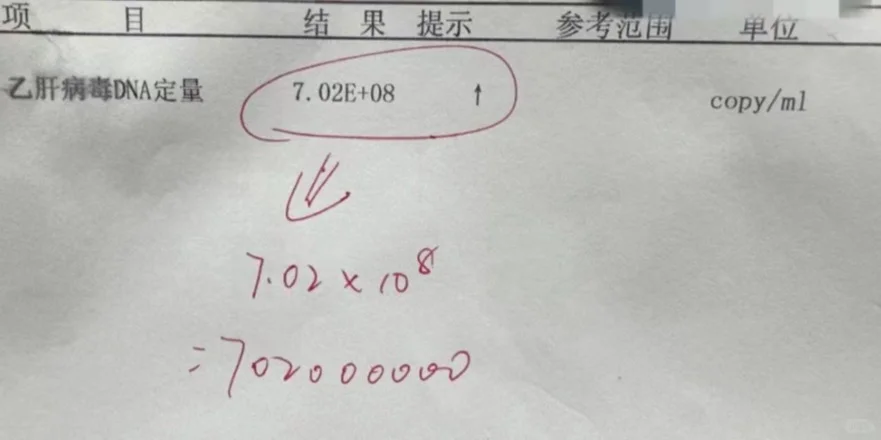 项 目 结 果 提示 参考范围 单位
乙肝病毒DNA定量 7.02E+08 ↑ copy/ml
7.02×10⁸
=702000000